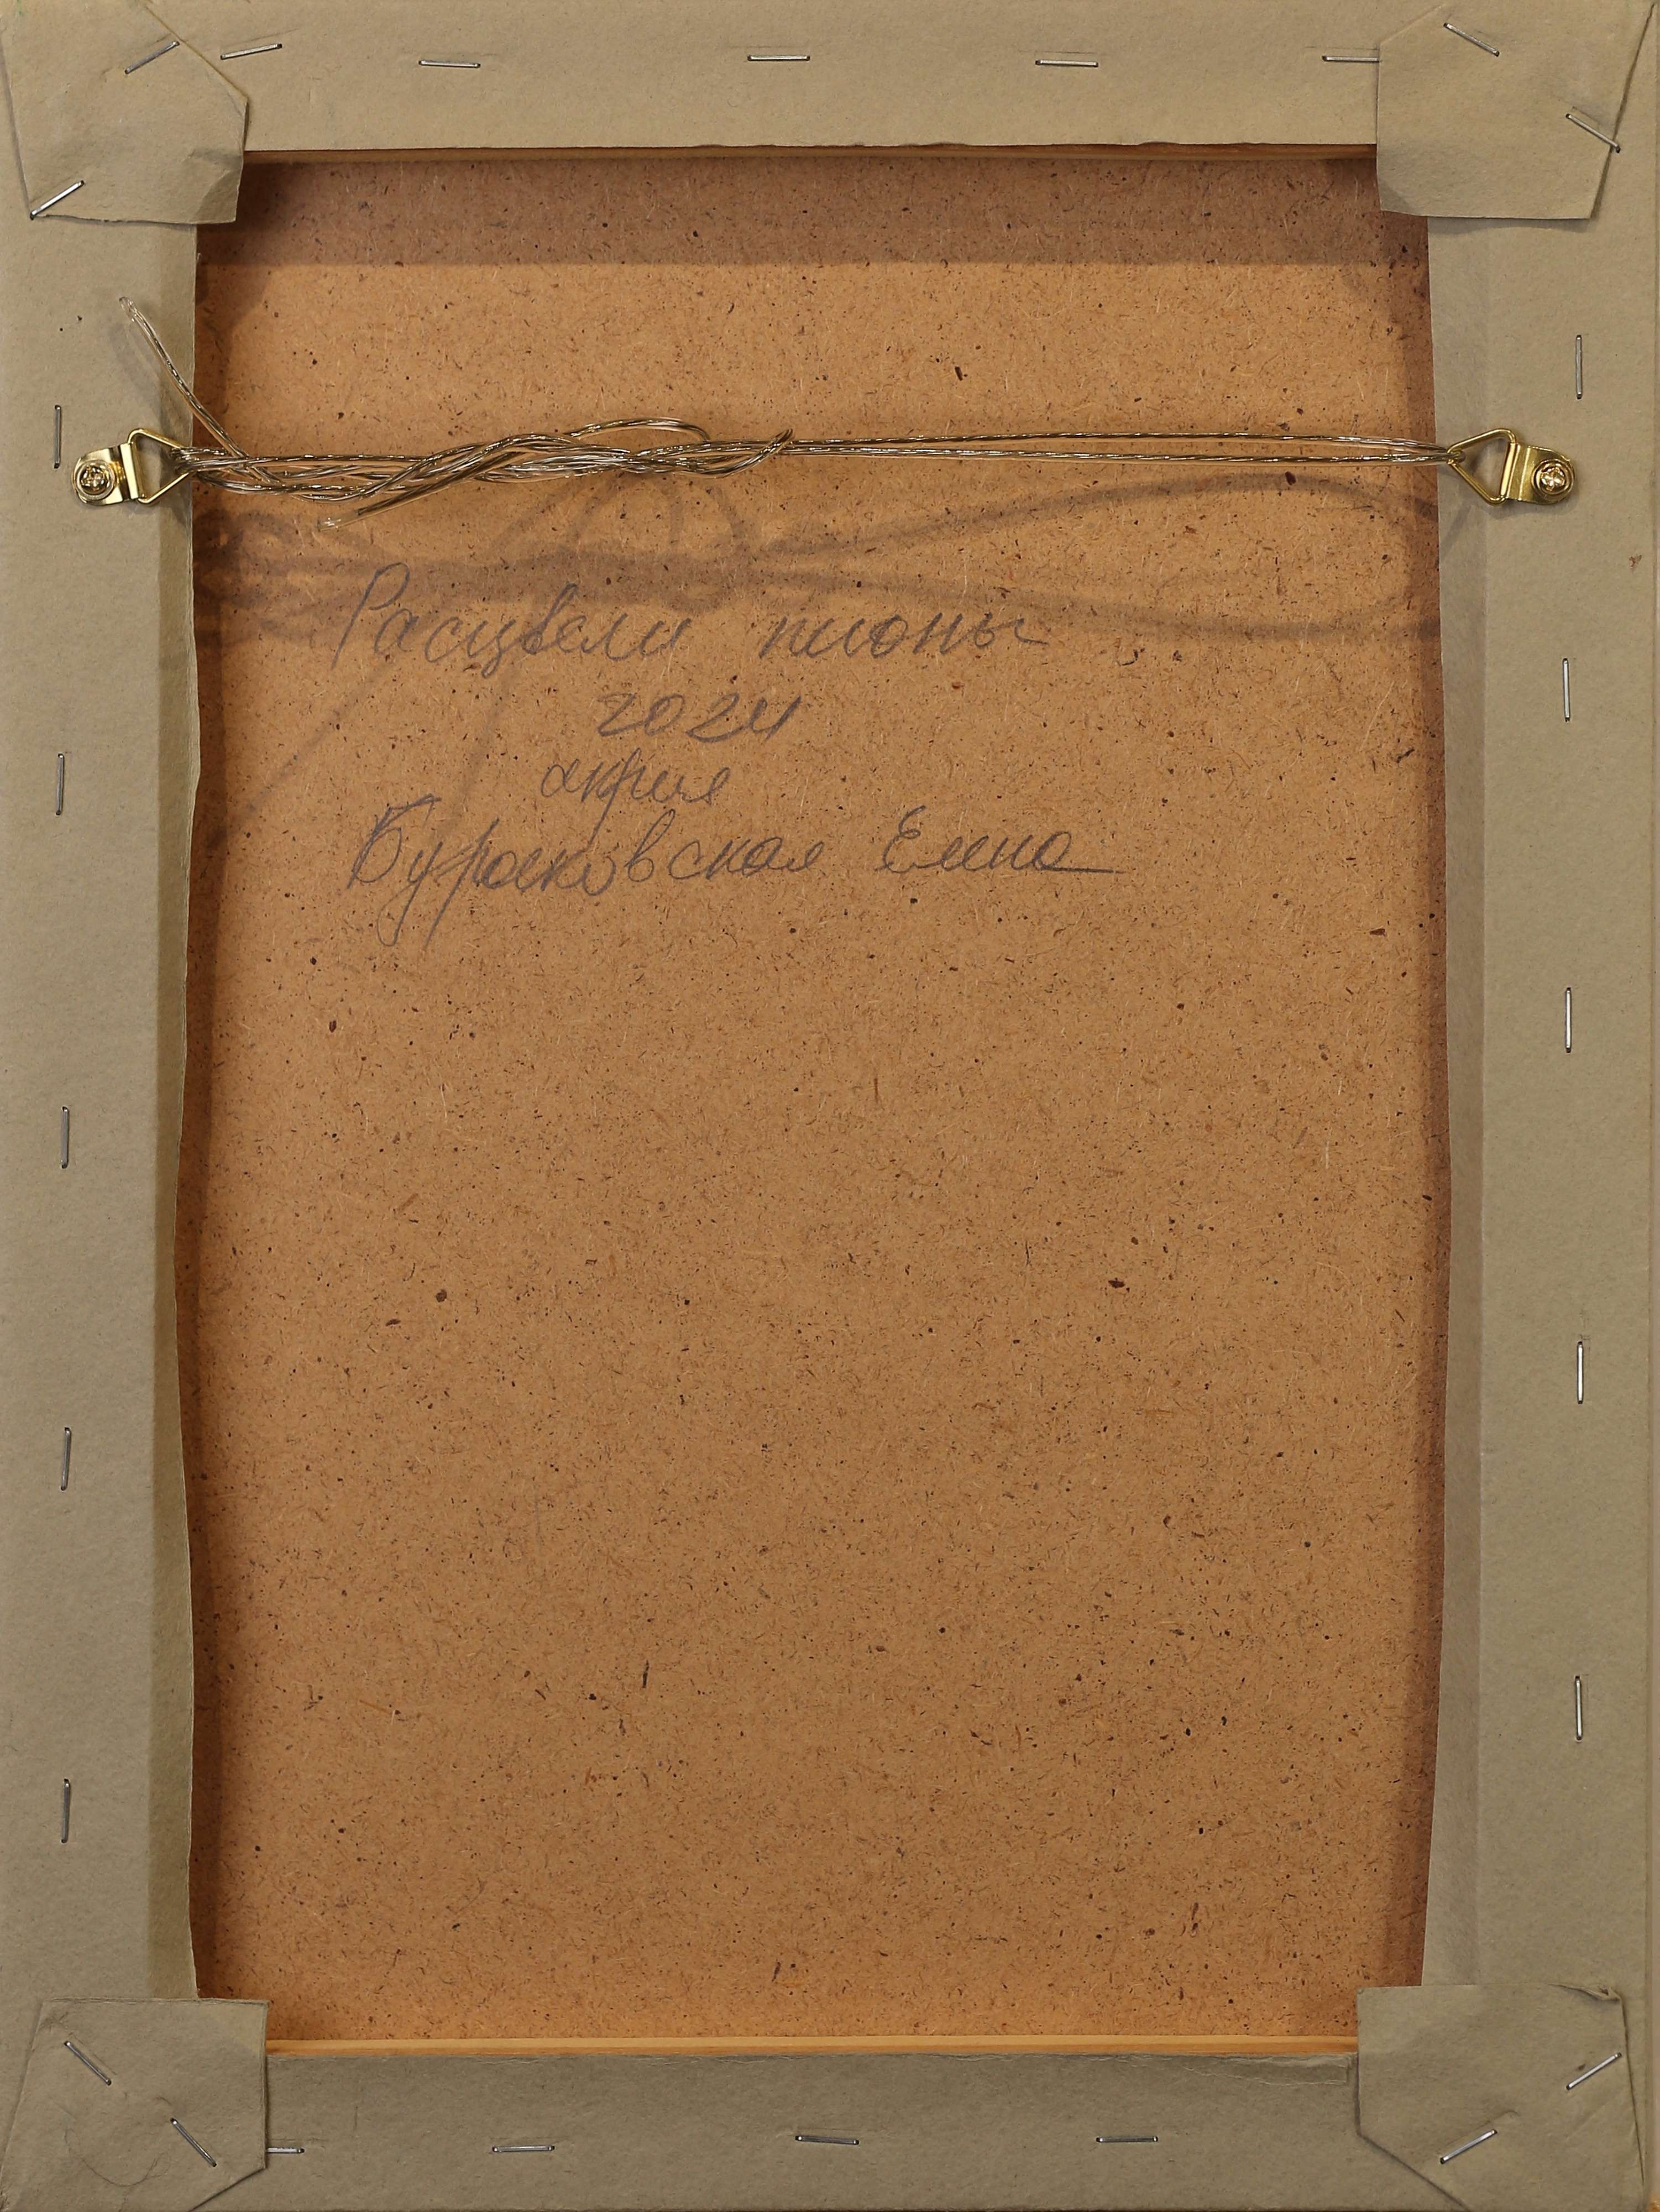 Расцвели пионы
2024
акрил
Бураковская Елена